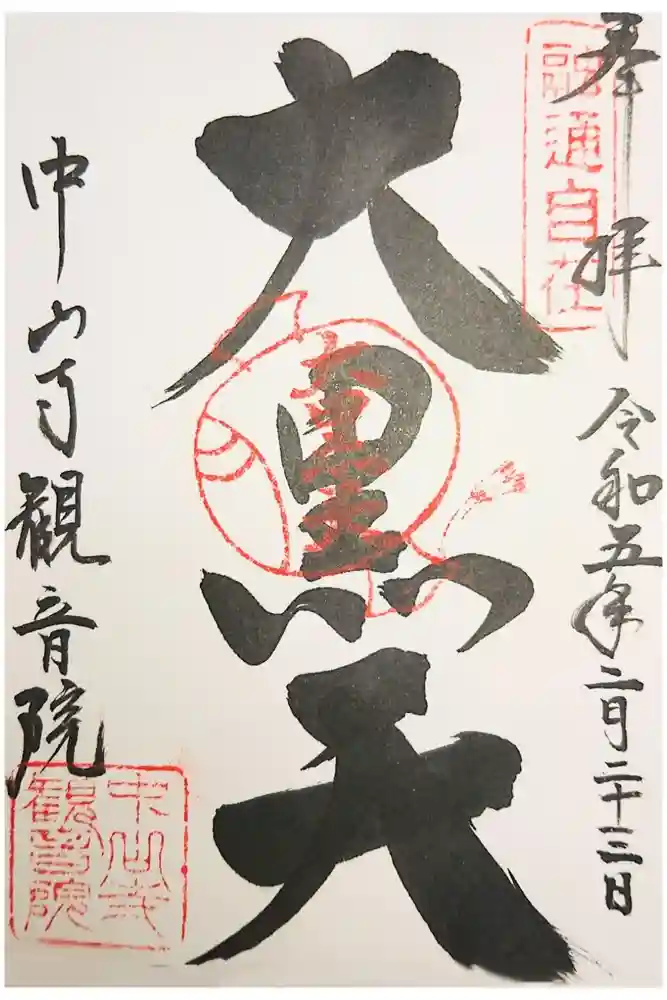 奉拝
令和五年二月二十三日
融通自在
大黒天
大黒天
中山寺観音院
中山寺
観音院